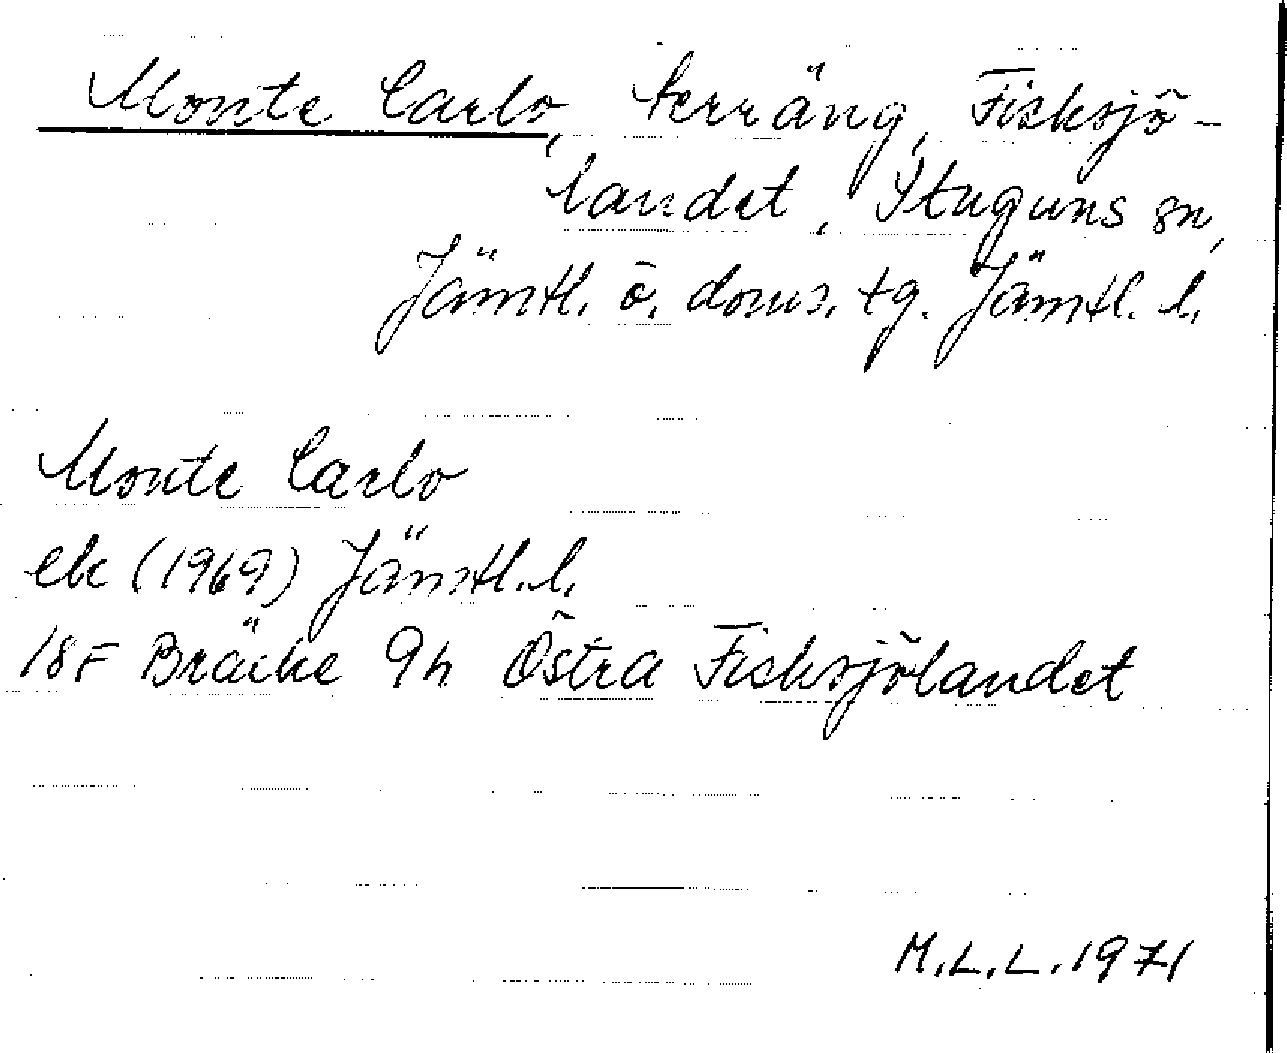 Monte Carlo, terräng, Fisksjö-
landet, Stuguns sn,
Jämtl. ö. doms. tg. Jämtl. l.
Monte Carlo
ek (1969) Jämtl. l.
18F Bräcke 9h Östra Fisksjölandet
M.L.L. 1971